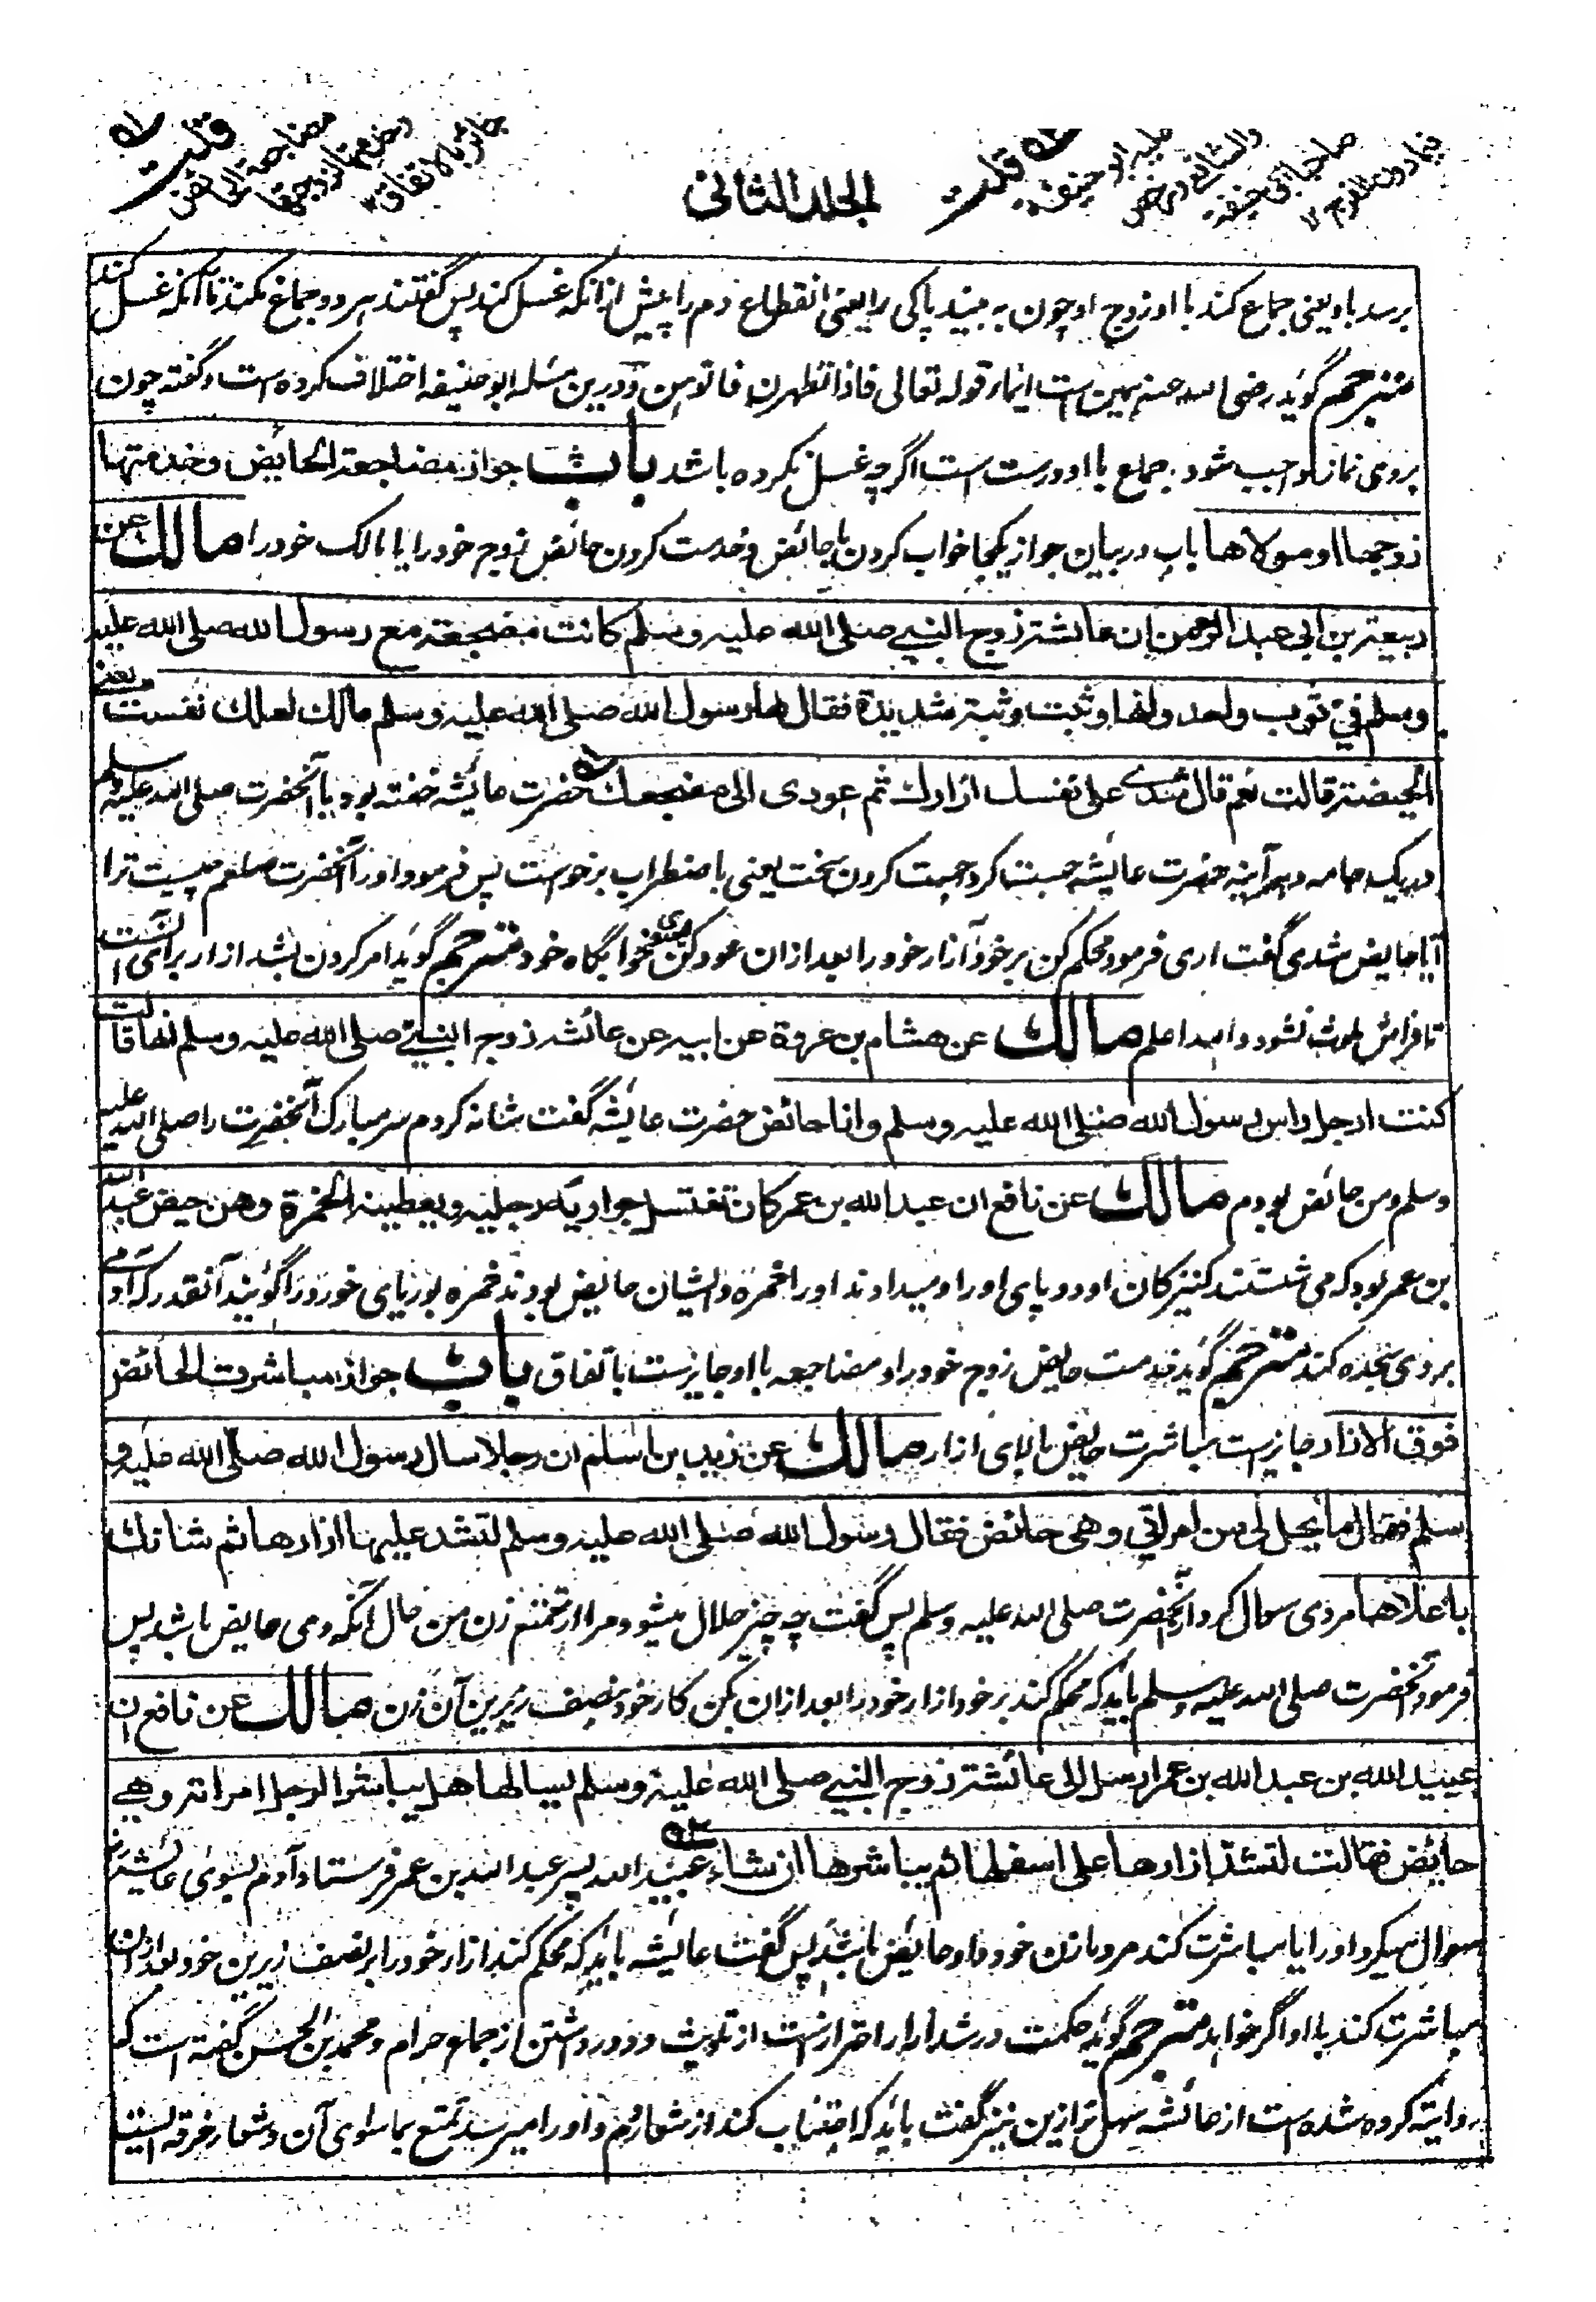 ۱ه قلت
مضاجعة الحائض
وخدمتها زوجها
جائز بالاتفاق
۲ه قلت
عليه ابو حنيفة
والشافعي وخص
صاحبا ابي حنيفة
فيما دون الفرج ۱۲
الجلد الثانی
برسد باو یعنی جماع کند با او زوج او چون به بیند پاکی را یعنی انقطاع دم را پیش از انکه غسل کند پس گفتند هر دو جماع نکند تا آنکه غسل کند
مترجم گوید رضی الله عنه همین است ایماء قوله تعالی فاذا تطهرن فاتوهن ودرین مسئله ابو حنیفه اختلاف کرده است وگفته چون
بروی نماز واجب شود جماع با او درست است اگرچه غسل نکرده باشد باب جواز مضاجعة الحائض وخدمتها
زوجها او مولاها باب در بیان جواز یکجا خواب کردن با حائض وخدمت کردن حائض زوج خود را یا مالک خود را مالك عن
ربيعة بن ابي عبد الرحمن ان عائشة زوج النبي صلى الله عليه وسلم كانت مضجعة مع رسول الله صلى الله عليه
وسلم في ثوب واحد وانها وثبت وثبة شديدة فقال لها رسول الله صلى الله عليه وسلم مالك لعلك نفست يعني
الحيضة قالت نعم قال شدي على نفسك ازارك ثم عودي الى مضجعك ۱ه حضرت عائشه خفته بود با آنحضرت صلی الله علیه وسلم
در یک جامه وهر آینه حضرت عایشه جست کرد جست کردن سخت یعنی باضطراب برخواست پس فرمود اورا آنحضرت صلعم چیست ترا
آیا حایض شدی گفت اری فرمود محکم کن بر خود آزار خود را بعد ازان عود کن بسوی خوابگاه خود مترجم گوید امر کردن بشد ازار برای آنست
تا فراش ملوث نشود والله اعلم مالك عن هشام بن عروة عن ابيه عن عائشة زوج النبي صلى الله عليه وسلم انها قالت
كنت ارجل راس رسول الله صلى الله عليه وسلم وانا حائض حضرت عایشه گفت شانه کردم سر مبارک آنحضرت را صلی الله علیه
وسلم ومن حائض بودم مالك عن نافع ان عبد الله بن عمر كان تغتسل جواريه رجليه ويعطينه الخمرة وهن حيض عبد الله
بن عمر بود که می شستند کنیزکان او دو پای اورا ومیدادند اورا خمره وایشان حایض بودند خمره بوریای خورد را گویند آنقدر که آدمی
بروی سجده کند مترجم گوید خدمت حایض زوج خود را ومضاجعه با او جایزست باتفاق باب جواز مباشرت الحائض
فوق الازار جایزست مباشرت حایض بالای ازار مالك عن زيد بن اسلم ان رجلا سال رسول الله صلى الله عليه و
سلم فقال ما يحل لي من امراتي وهي حائض فقال رسول الله صلى الله عليه وسلم لتشد عليها ازارها ثم شانك
باعلاها مردی سوال کرد از آنحضرت صلی الله علیه وسلم پس گفت چه چیز حلال میشود مرا از تمتع زن من حال آنکه وی حایض باشد پس
فرمود آنحضرت صلی الله علیه وسلم باید که محکم کند بر خود ازار خود را بعد ازان بکن کار خود بنصف زبرین آن زن مالك عن نافع ان
عبيد الله بن عبد الله بن عمر ارسل الى عائشة زوج النبي صلى الله عليه وسلم يسالها هل يباشر الرجل امراته وهي
حائض فقالت لتشد ازارها على اسفلها ثم يباشرها ان شاء ۲ه عبید الله پسر عبد الله بن عمر فرستاد آدم بسوی عائشه
سوال میکرد اورا ایا مباشرت کند مرد با زن خود واو حایض باشد پس گفت عایشه باید که محکم کند ازار خود را بر نصف زیرین خود بعد ازان
مباشرت کند با او اگر خواهد مترجم گوید حکمت در شد ازار احتراز ست از تلویث ودور داشتن از جماع حرام ومحمد بن الحسن گفته است که
روایته کرده شده است از عائشه سهل تر ازین نیز گفت باید که اجتناب کند از شعار دم واورا میرسد تمتع بماسوای آن وشعار خرقه ایست